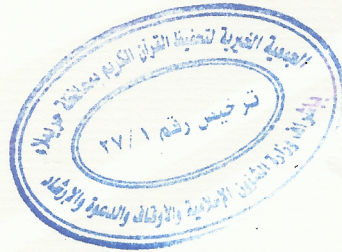 الجمعية الخيرية لتحفيظ القرآن الكريم بمحافظة حريملاء
ترخيس رقم ٢٧/١
بإشراف وزارة الشؤون الإسلامية والأوقاف والدعوة والإرشاد